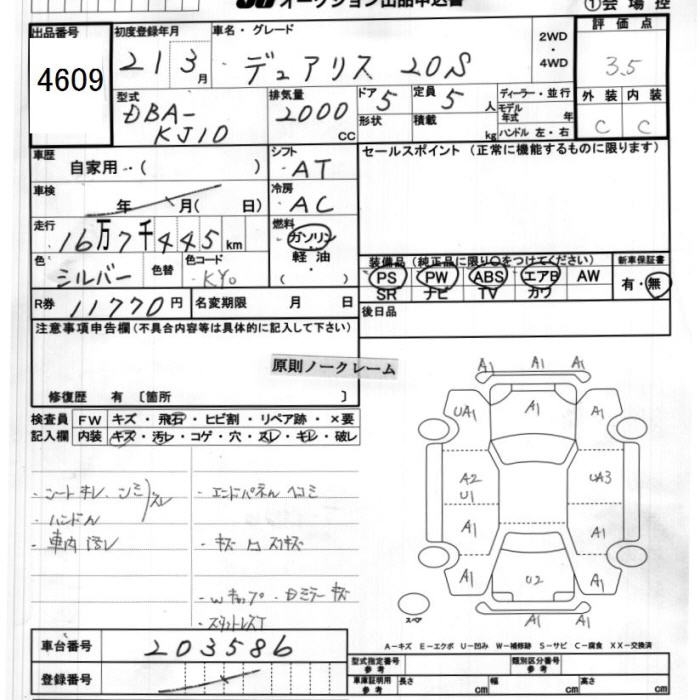 オークション出品申込書
① 会 場 控
出品番号
4609
初度登録年月
21 3月
車名・グレード
デュアリス 20S
2WD・4WD
評価点
3.5
型式
DBA-KJ10
排気量
2000 cc
ドア 5
形状
定員 5 人
積載 kg
ディーラー・並行
モデル年式 年
ハンドル 左・右
外装 内装
C C
車歴
自家用・・( )
シフト
AT
セールスポイント (正常に機能するものに限ります)
車検
年 月( 日)
冷房
AC
走行
16万7千445km
燃料
ガソリン・軽油・( )
色
シルバー
色替
色コード
KY0
装備品 (純正品に限り○をつけてください)
PS PW ABS エアB AW
SR ナビ TV カワ
新車保証書
有・無
R券 11770円
名変期限 月 日
後日品
注意事項申告欄(不具合内容等は具体的に記入して下さい)
原則ノークレーム
修復歴 有 〔箇所 〕
検査員記入欄
FW キズ・飛石・ヒビ割・リペア跡・×要
内装 キズ・汚レ・コゲ・穴・スレ・キレ・破レ
・シートキレ、シミ スレ
・ハンドル
・車内汚レ
・エンドパネルヘコミ
・キズ
A1 A1 A1
UA1 A1 A1
A2 U1 UA3
A1 A1
A1 U2 A1
A1 A1
スペア
A－キズ E－エクボ U－凹み W－補修跡 S－サビ C－腐食 XX－交換済
車台番号
203586
登録番号
型式指定番号 参考
類別区分番号 参考
車庫証明用 参考
長さ cm
幅 cm
高さ cm